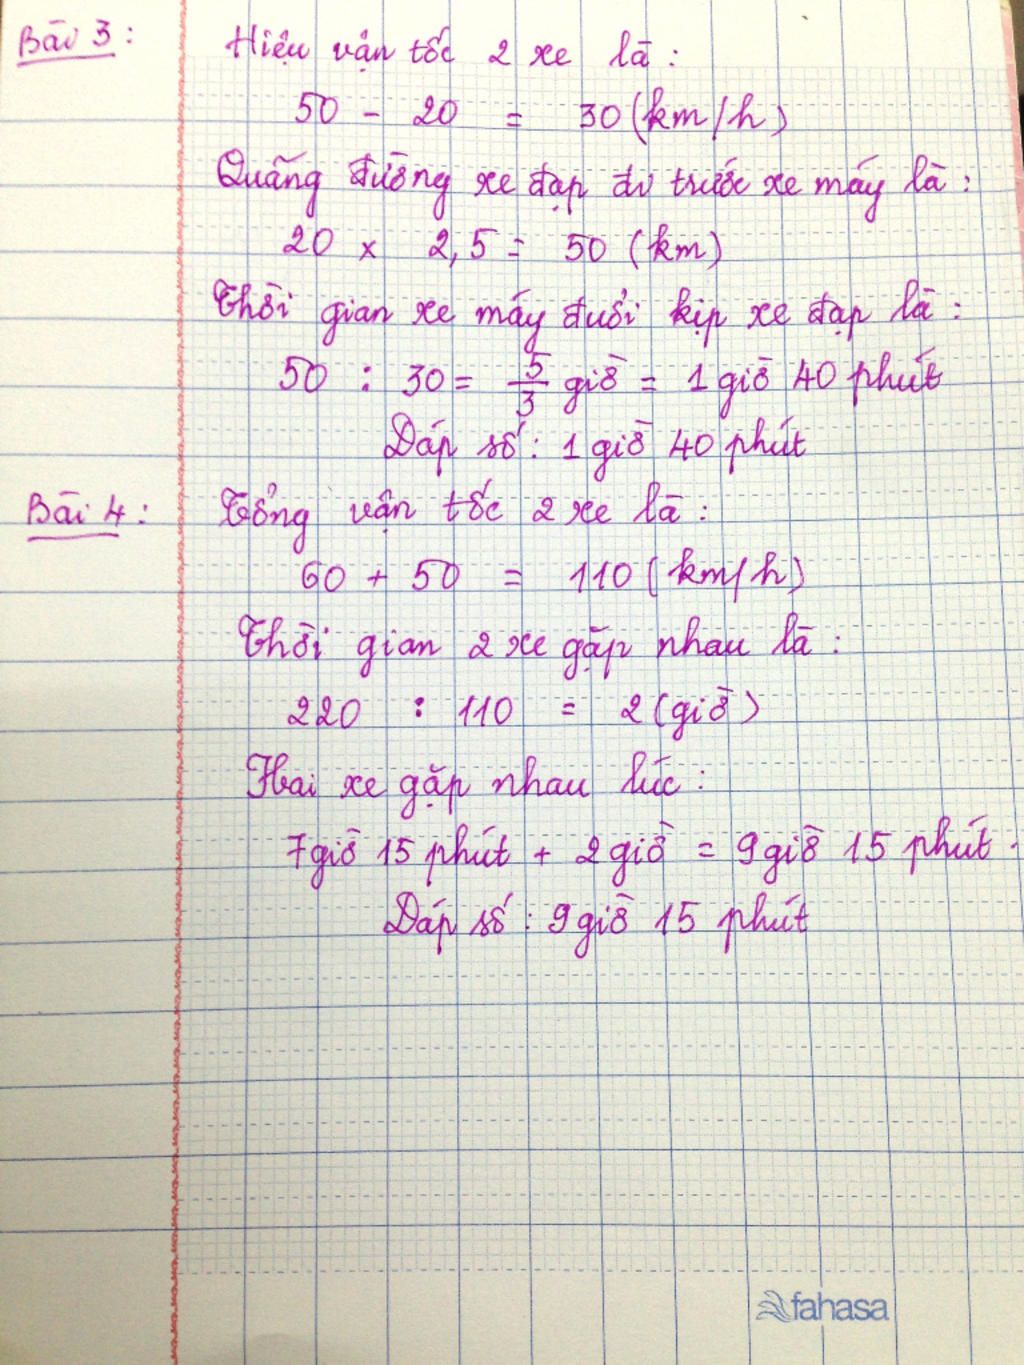 Bài 3: Hiệu vận tốc 2 xe là:
50 - 20 = 30 (km/h)
Quãng đường xe đạp đi trước xe máy là:
20 x 2,5 = 50 (km)
Thời gian xe máy đuổi kịp xe đạp là:
50 : 30 = 5/3 giờ = 1 giờ 40 phút
Đáp số: 1 giờ 40 phút
Bài 4: Tổng vận tốc 2 xe là:
60 + 50 = 110 (km/h)
Thời gian 2 xe gặp nhau là:
220 : 110 = 2 (giờ)
Hai xe gặp nhau lúc:
7 giờ 15 phút + 2 giờ = 9 giờ 15 phút.
Đáp số: 9 giờ 15 phút
fahasa